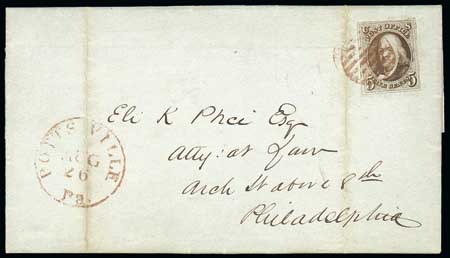 POST OFFICE
5 FIVE CENTS 5
Eli K Price Esq
Atty: at Law
Arch St above 8th
Philadelphia
POTTSVILLE
AUG
26
Pa.